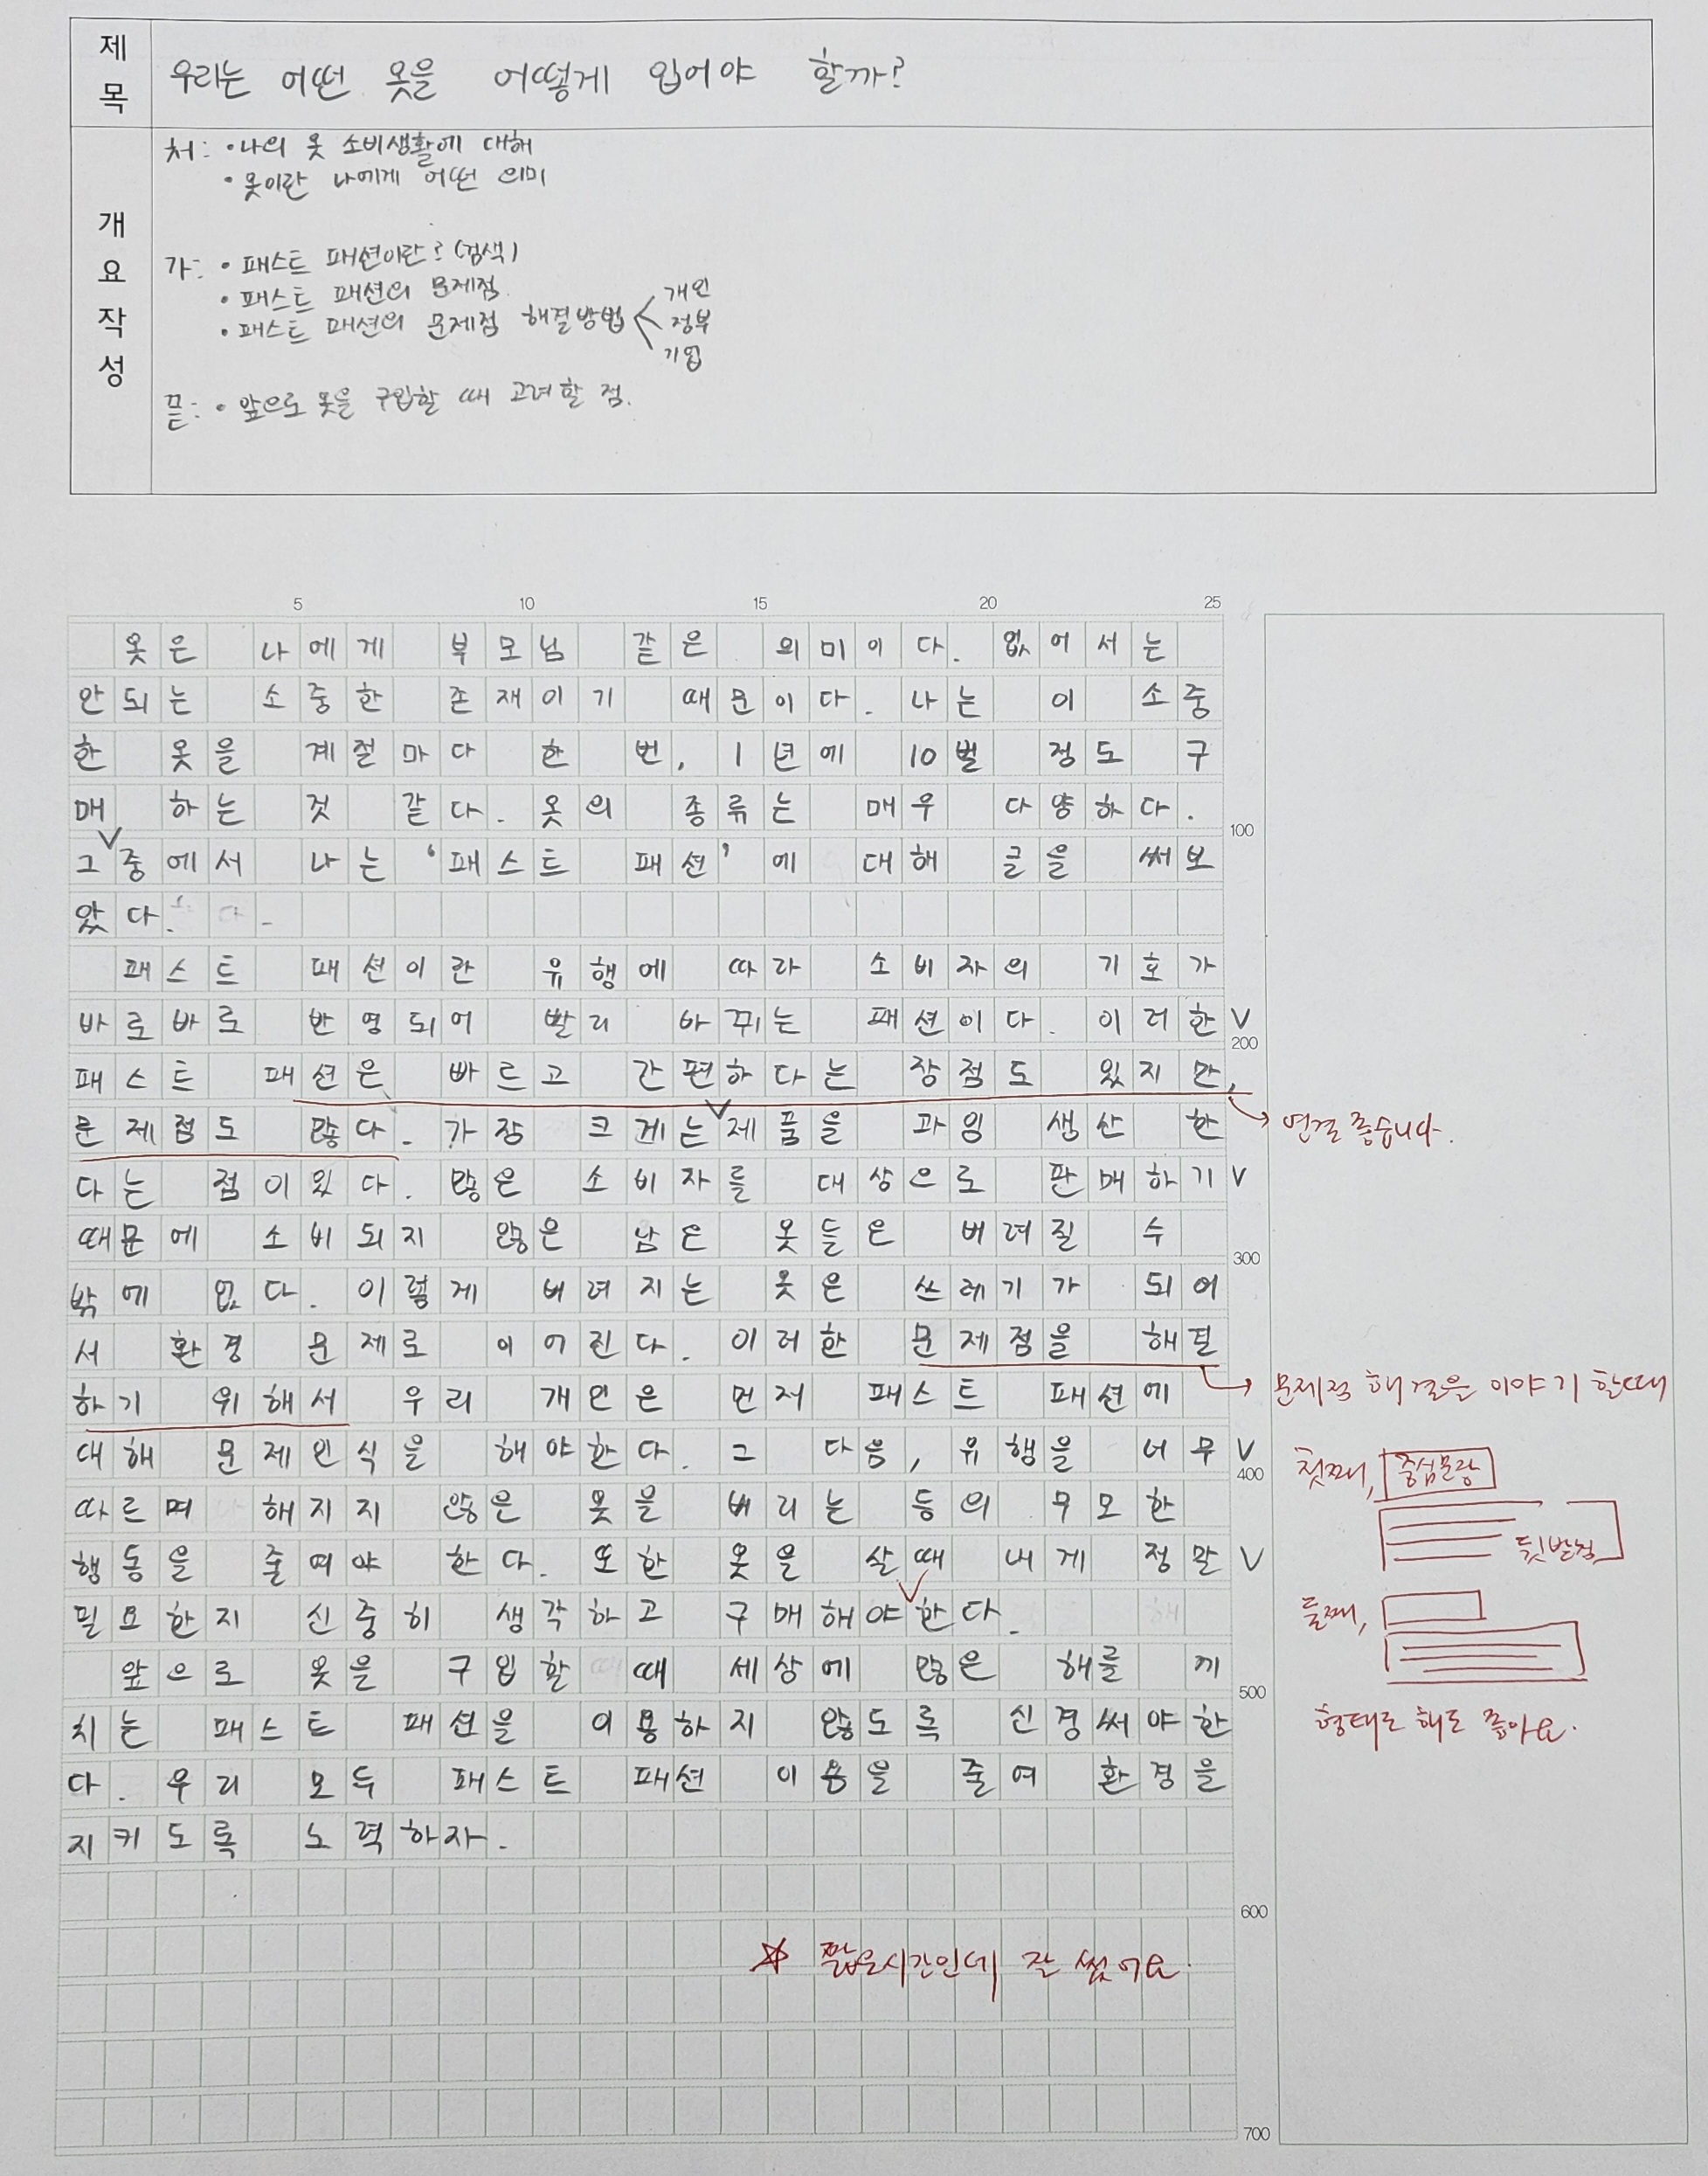 제목
우리는 어떤 옷을 어떻게 입어야 할까?
개요작성
처: •나의 옷 소비생활에 대해
•옷이란 나에게 어떤 의미
가: •패스트 패션이란? (검색)
•패스트 패션의 문제점
•패스트 패션의 문제점 해결방법
개인
정부
기업
끝: •앞으로 옷을 구입할 때 고려할 점.
5 10 15 20 25
옷은 나에게 부모님 같은 의미이다. 없어서는
안되는 소중한 존재이기 때문이다. 나는 이 소중
한 옷을 계절마다 한 번, 1년에 10벌 정도 구
매 하는 것 같다. 옷의 종류는 매우 다양하다.
100
그∨중에서 나는 '패스트 패션'에 대해 글을 써보
았다.
패스트 패션이란 유행에 따라 소비자의 기호가
바로바로 반영되어 빨리 바뀌는 패션이다. 이러한 ∨
200
패스트 패션은 빠르고 간편하다는 장점도 있지만,
문제점도 많다. 가장 크게는∨제품을 과잉 생산 한
연결 좋습니다.
다는 점이있다. 많은 소비자를 대상으로 판매하기 ∨
때문에 소비되지 않은 남은 옷들은 버려질 수
300
밖에 없다. 이렇게 버려지는 옷은 쓰레기가 되어
서 환경 문제로 이어진다. 이러한 문제점을 해결
하기 위해서 우리 개인은 먼저 패스트 패션에
문제점 해결을 이야기 할때
대해 문제인식을 해야한다. 그 다음, 유행을 너무 ∨
400
첫째, 중심문장
따르며 해지지 않은 옷을 버리는 등의 무모한
뒷받침
행동을 줄여야 한다. 또한 옷을 살때 내게 정말 ∨
필요한지 신중히 생각하고 구매해야∨한다.
둘째,
앞으로 옷을 구입할 때 세상에 많은 해를 끼
500
치는 패스트 패션을 이용하지 않도록 신경써야한
형태로 해도 좋아요.
다. 우리 모두 패스트 패션 이용을 줄여 환경을
지키도록 노력하자.
600
☆ 짧은시간인데 잘 썼어요.
700